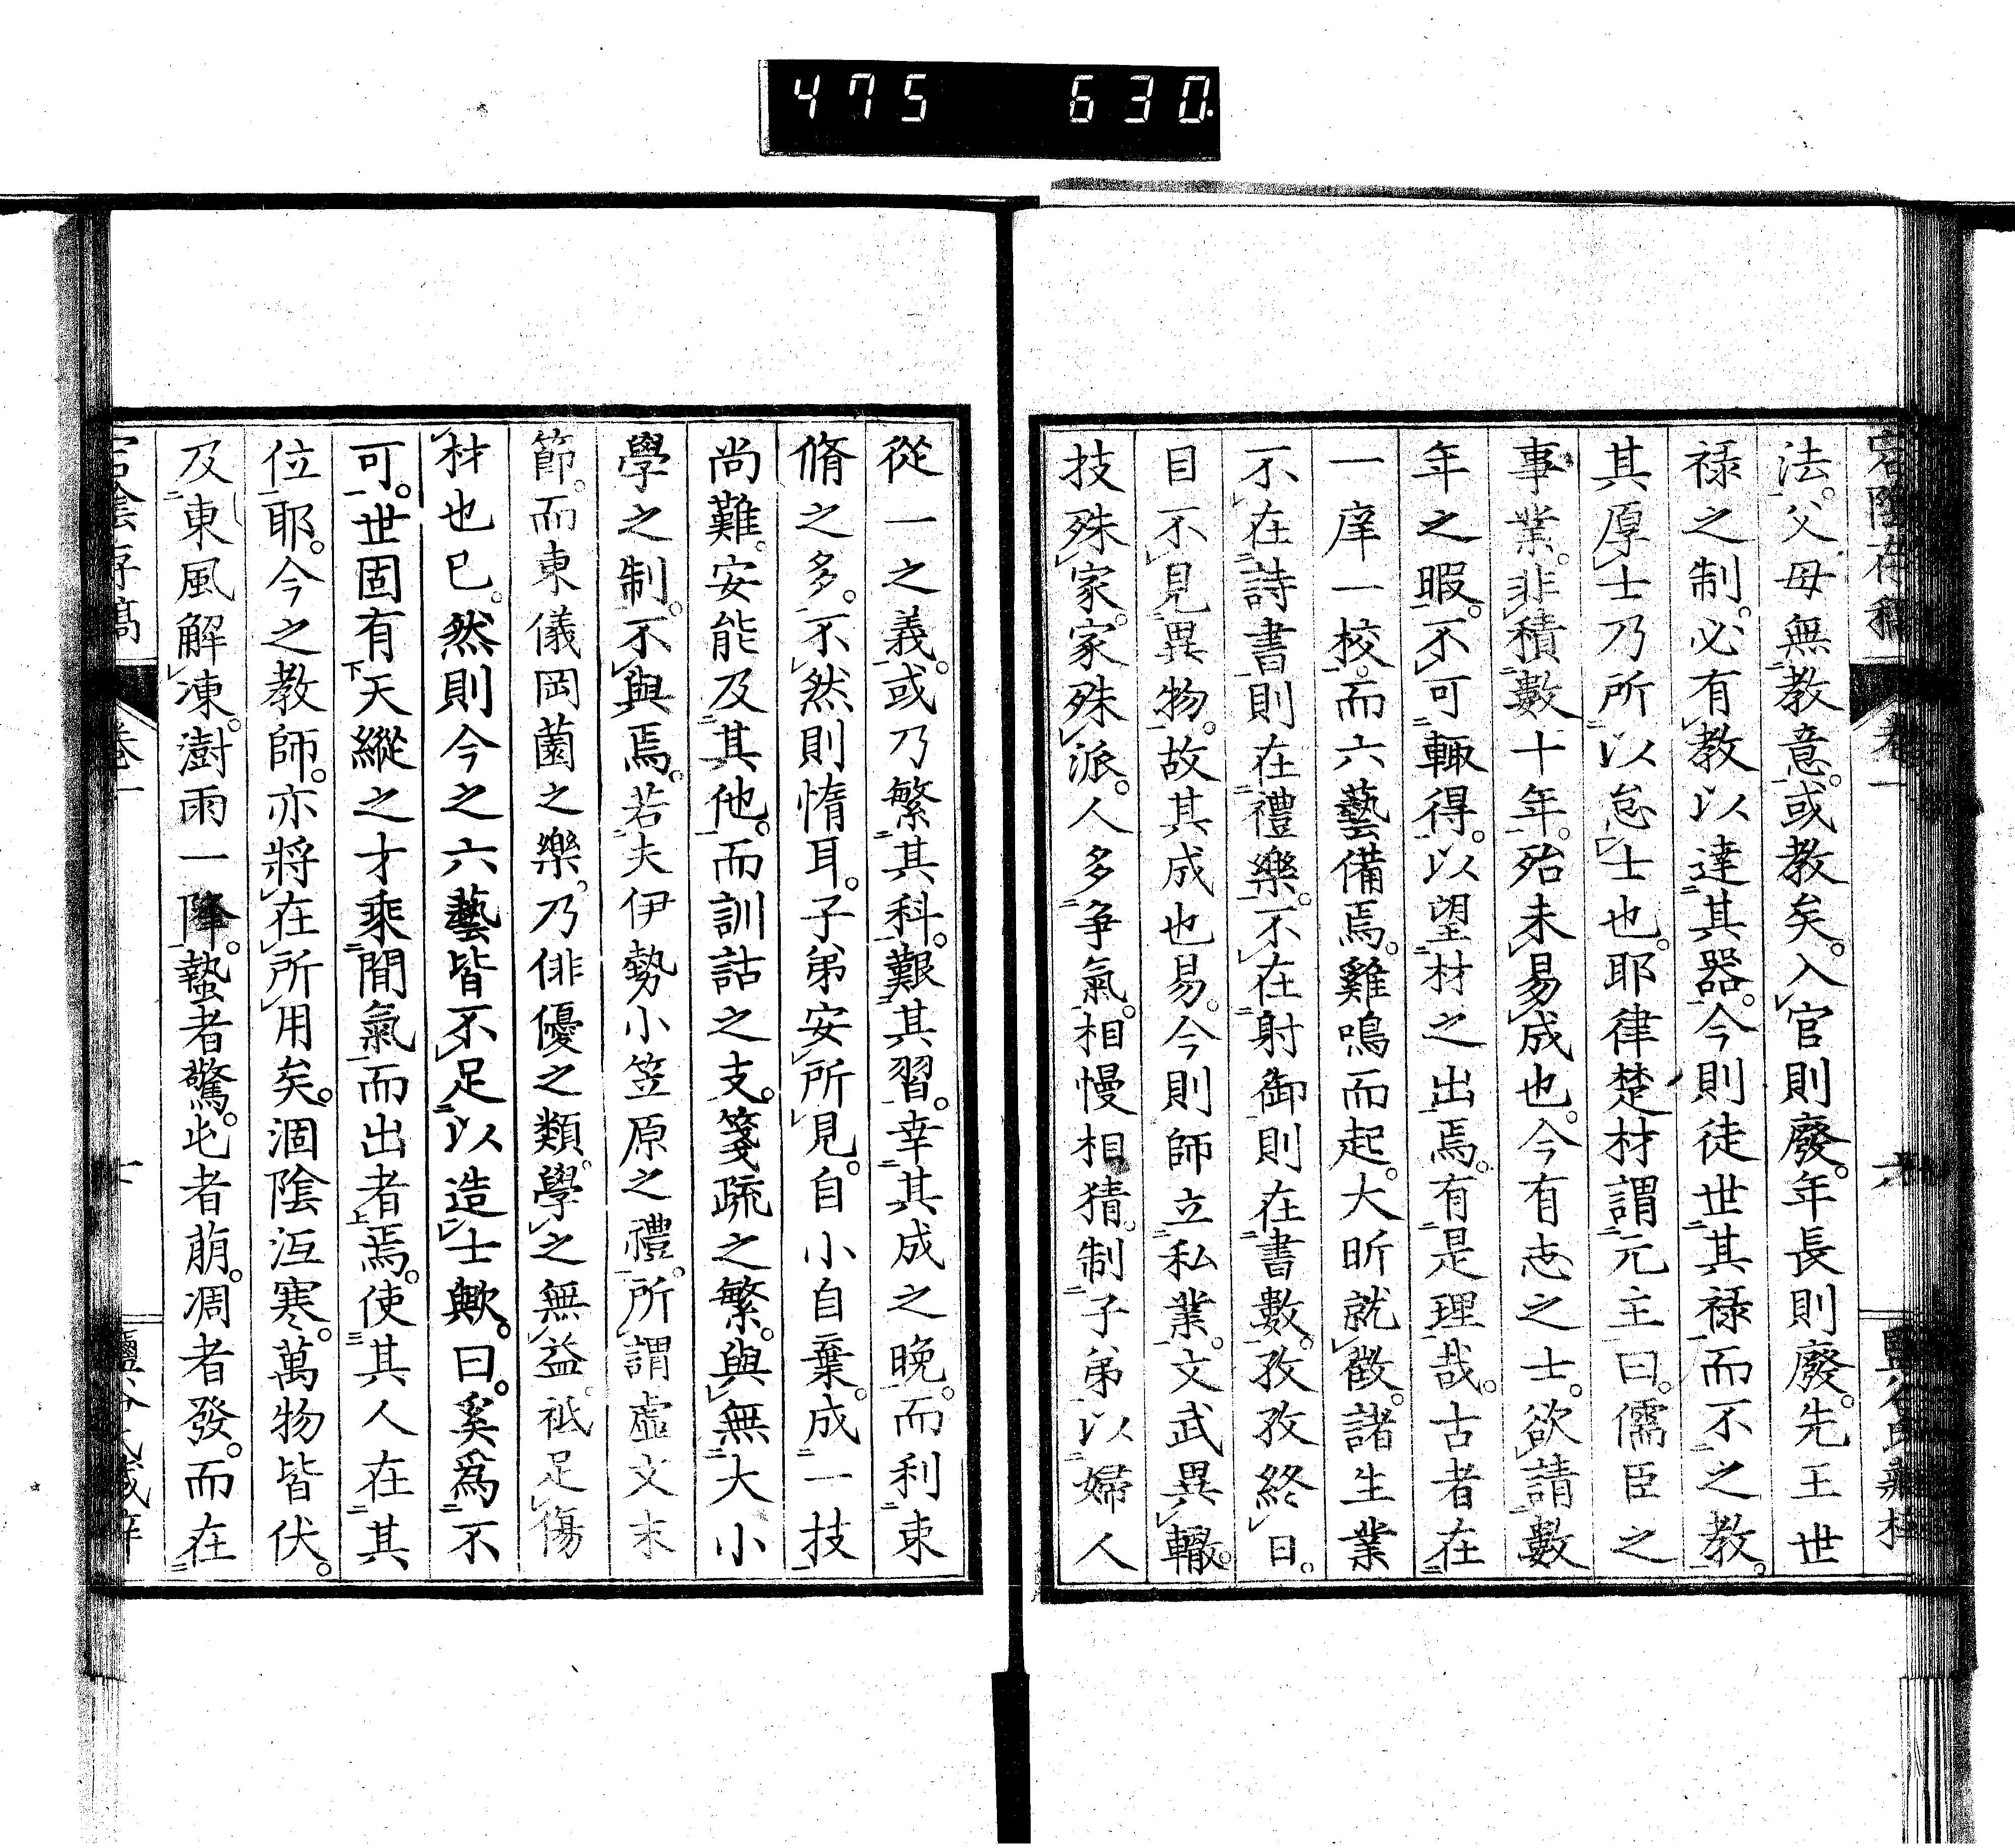 475 630
宕陰存稿 卷一 六
法。父母無教意。或教矣。入官則廢。年長則廢。先王世
禄之制。必有教以達其器。今則徒世其禄而不之教。
其厚士乃所以怠士也。耶律楚材謂元主曰。儒臣之
事業。非積數十年。殆未易成也。今有志之士。欲請數
年之暇。不可輙得。以望材之出焉。有是理哉。古者在
一庠一校。而六藝備焉。雞鳴而起。大昕就徵。諸生業
不在詩書則在禮樂。不在射御則在書數。孜孜終日。
目不見異物。故其成也易。今則師立私業。文武異轍。
技殊家。家殊派。人多争氣。相慢相猜。制子弟以婦人
從一之義。或乃繁其科。艱其習。幸其成之晚。而利束
脩之多。不然則惰耳。子弟安所見。自小自棄。成一技
尚難。安能及其他。而訓詁之支。箋疏之繁。與無大小
學之制。不與焉。若夫伊勢小笠原之禮。所謂虛文末
節。而東儀岡薗之樂。乃俳優之類。學之無益。祗足傷
材也已。然則今之六藝皆不足以造士歟。曰。奚爲不
可。世固有天縱之才乘間氣而出者焉。使其人在其
位耶。今之教師。亦將在所用矣。涸陰沍寒。萬物皆伏。
及東風解凍。澍雨一降。蟄者驚。屯者萠。凋者發。而在
宕陰存稿 卷一